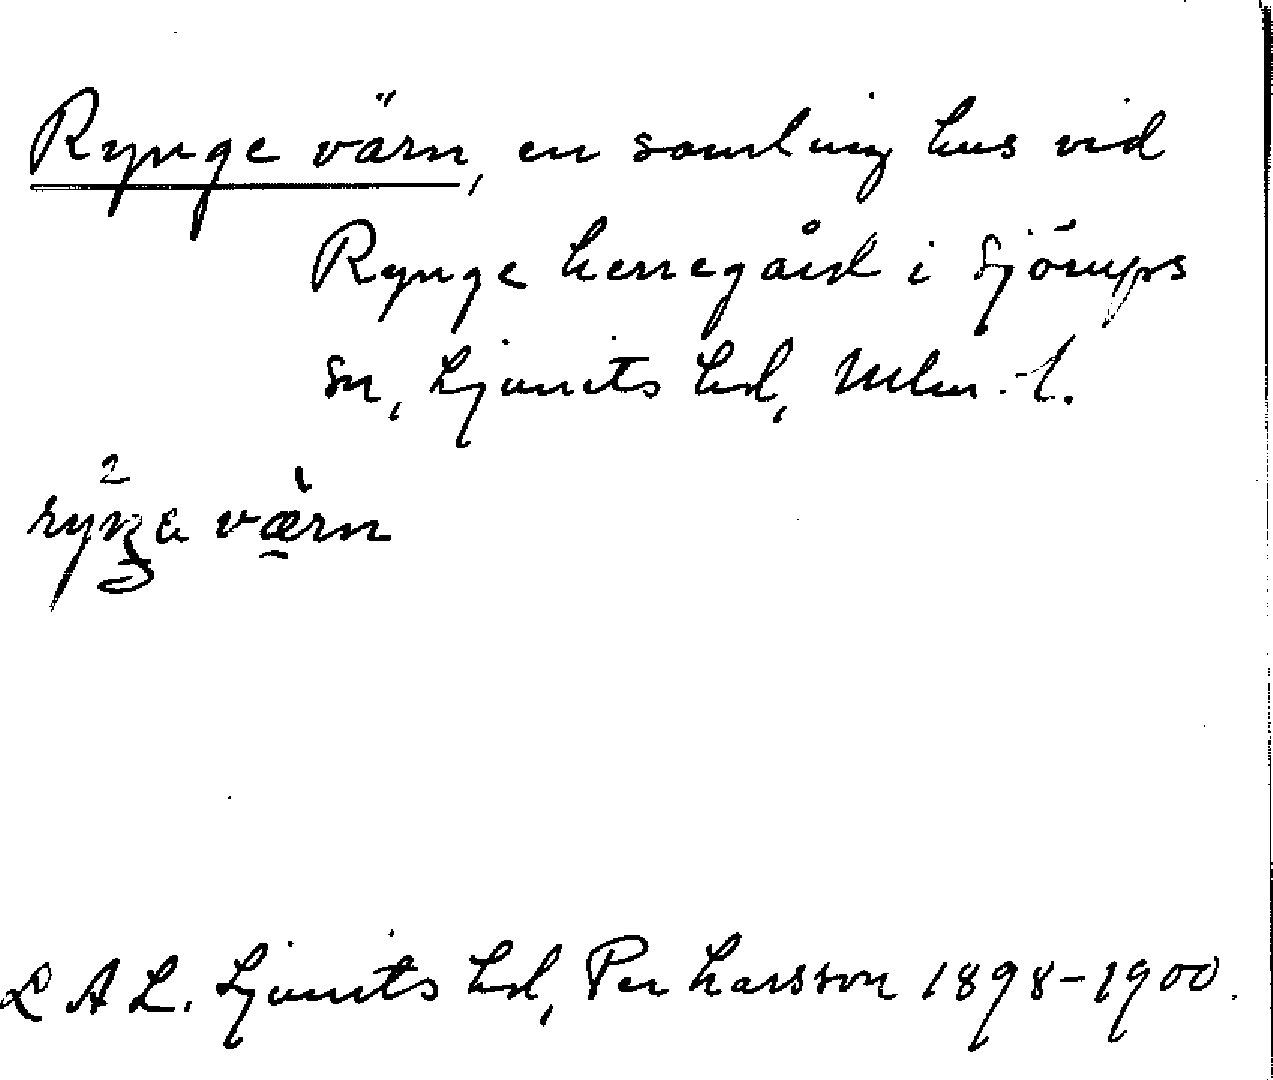 Rynge värn, en samling hus vid
Rynge herregård i Sjörups
sn, Ljunits hd, Mlm. l.
värn
L A L. Ljunits hd, Per Larsson 1898-1900.